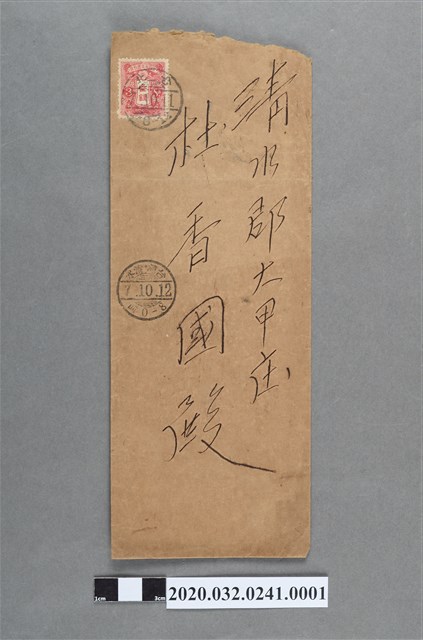 清水郡大甲庄
杜香國殿
7.10.12
0-8
1cm
3cm
2020.032.0241.0001